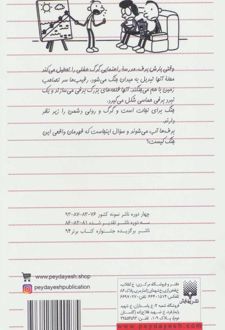 وقتی بارش برف، مدرسه راهنمایی گرگ هفلی را تعطیل می‌کند
محله آنها تبدیل به میدان جنگ می‌شود. رقیب‌ها سر تصاحب
زمین با هم می‌جنگند. آنها قلعه‌های بزرگ برفی می‌سازند و یک
نبرد برفی حماسی شکل می‌گیرد.
جنگ برای نجات است و گرگ و رولی دشمن را زیر نظر
دارند.
برف‌ها آب می‌شوند و سؤال اینجاست که قهرمان واقعی این
جنگ کیست؟
چهار دوره ناشر نمونه کشور ۷۶-۸۲-۸۷-۹۳
سه دوره ناشر تقدیر شده ۸۱-۸۲-
ناشر برگزیده جشنواره کتاب برتر ۹۴
peydayesh.shop
peydayeshpublication